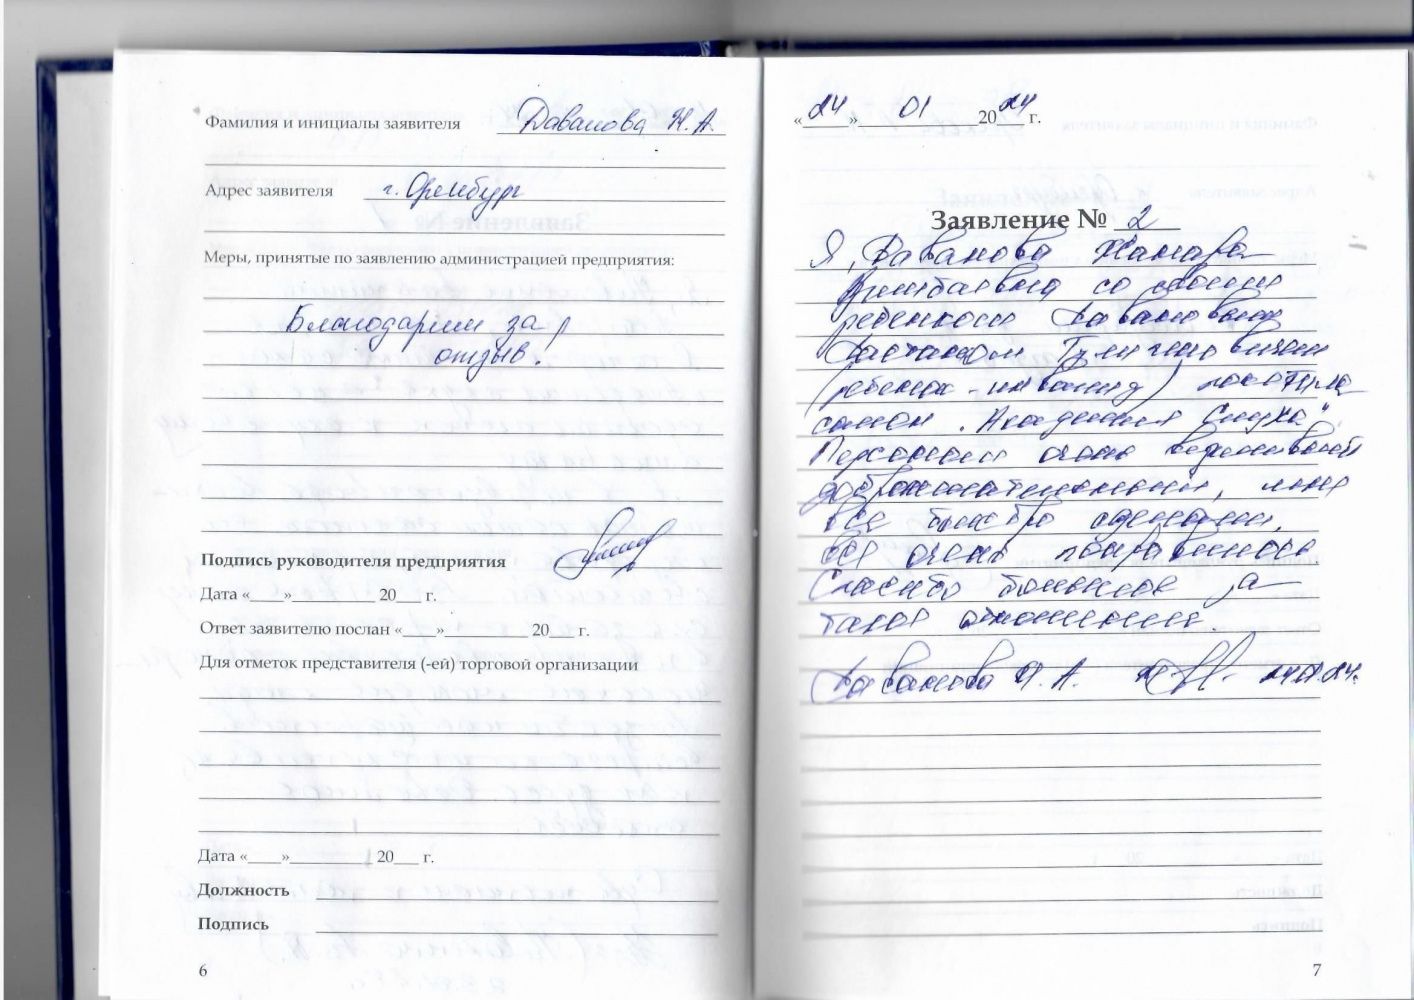 Фамилия и инициалы заявителя Даванова Ж.А.
Адрес заявителя г. Оренбург
Меры, принятые по заявлению администрацией предприятия:
Благодарим за
отзыв!
Подпись руководителя предприятия
Дата «____»__________ 20___ г.
Ответ заявителю послан «____»__________ 20___ г.
Для отметок представителя (-ей) торговой организации
Дата «____»__________ 20___ г.
Должность
Подпись
6
«24» 01 2024 г.
Заявление № 2
Я, Даванова Жанара
со своим
ребенком Давановым
Дастаном
(ребенок-инвалид) посетила
салон "Академия Слуха"
Персонал очень вежливый
доброжелательный, нам
все быстро сделали,
все очень понравилось
Спасибо большое за
такое отношение.
Даванова Ж.А. 24.01.24.
7